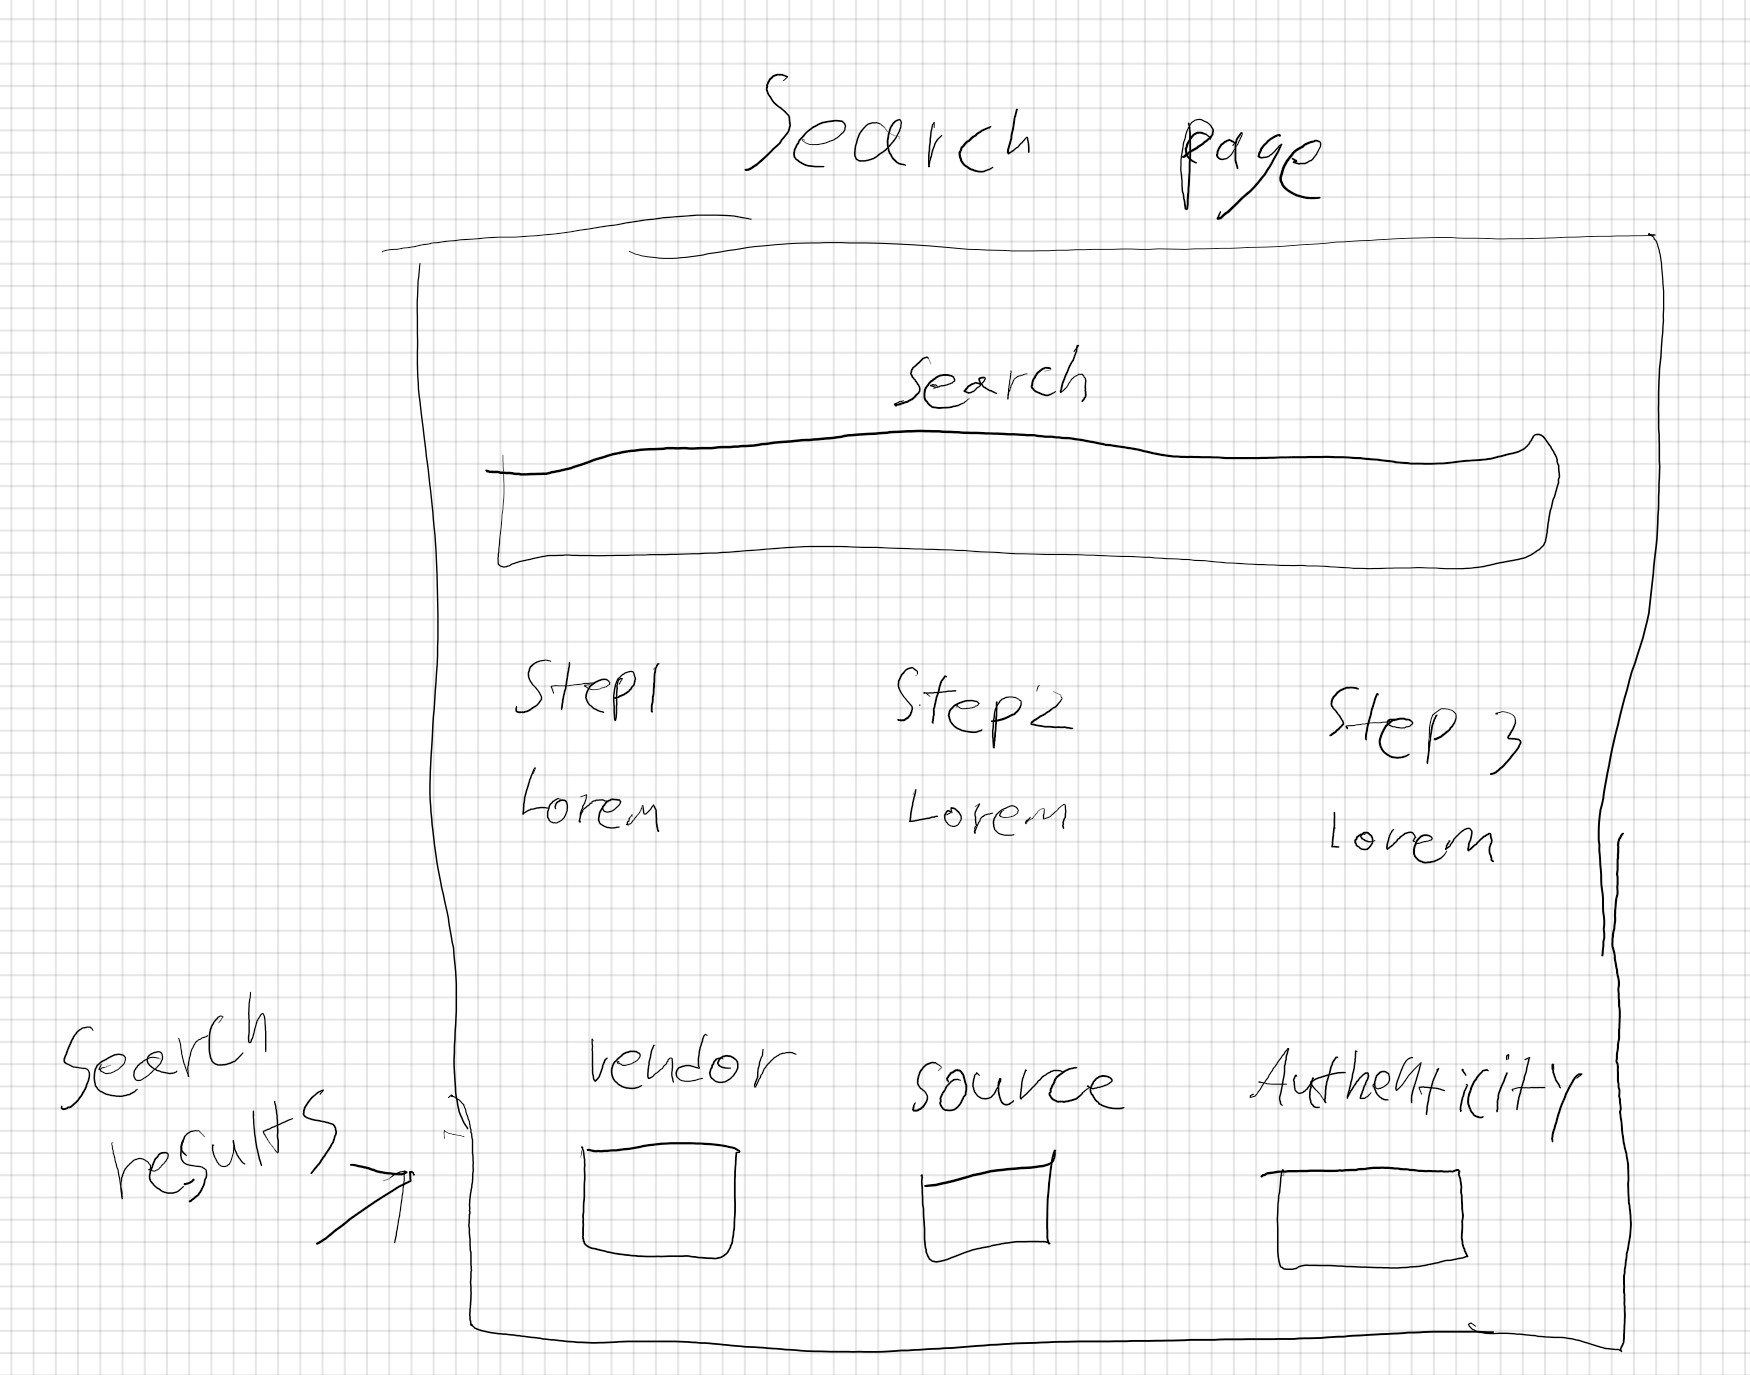 Search page
search
Step1 Step2 Step 3
Lorem Lorem Lorem
Search
results
vendor source Authenticity